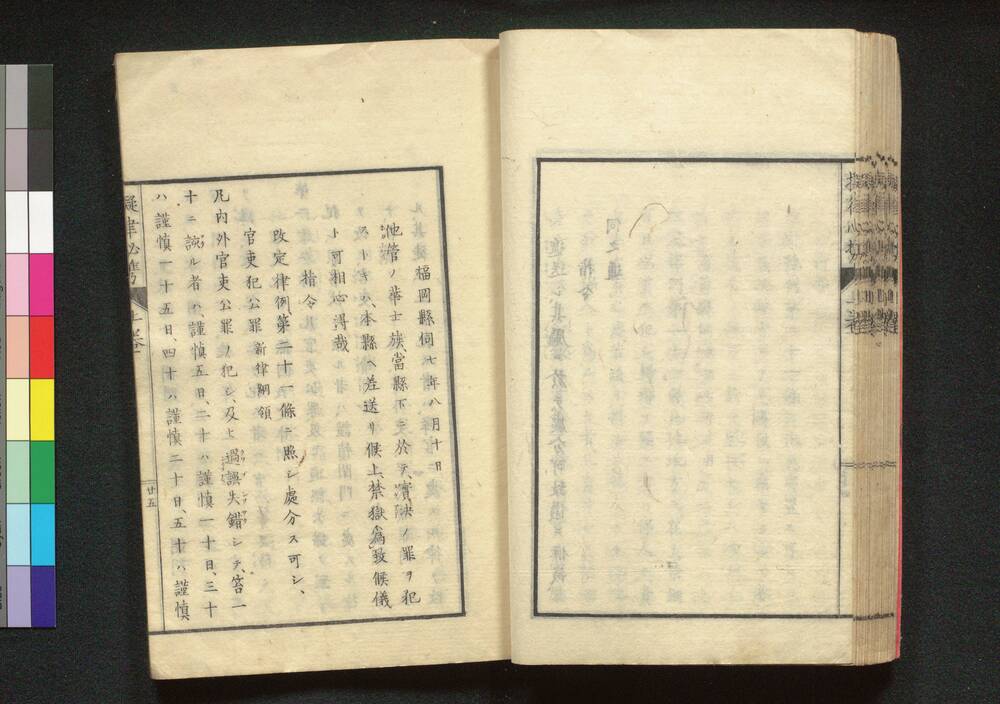 擬律必携
上卷
福岡縣伺七年八月十日
他管ノ華士族、當縣下ニ於テ、實決ノ罪ヲ犯
ストキハ、本縣ヘ差送リ候上、禁獄爲致候儀
ト可相心得哉
指令
改定律例、第二十一條ニ照シ處分ス可シ、
官吏犯公罪 新律綱領
凡内外官吏公罪ノ犯シ、及ヒ過誤失錯シテ、笞一
十ニ該ル者ハ、謹慎五日、二十ハ謹慎一十日、三十
ハ謹慎一十五日、四十ハ謹慎二十日、五十ハ謹慎
擬律必携
上卷
廿五